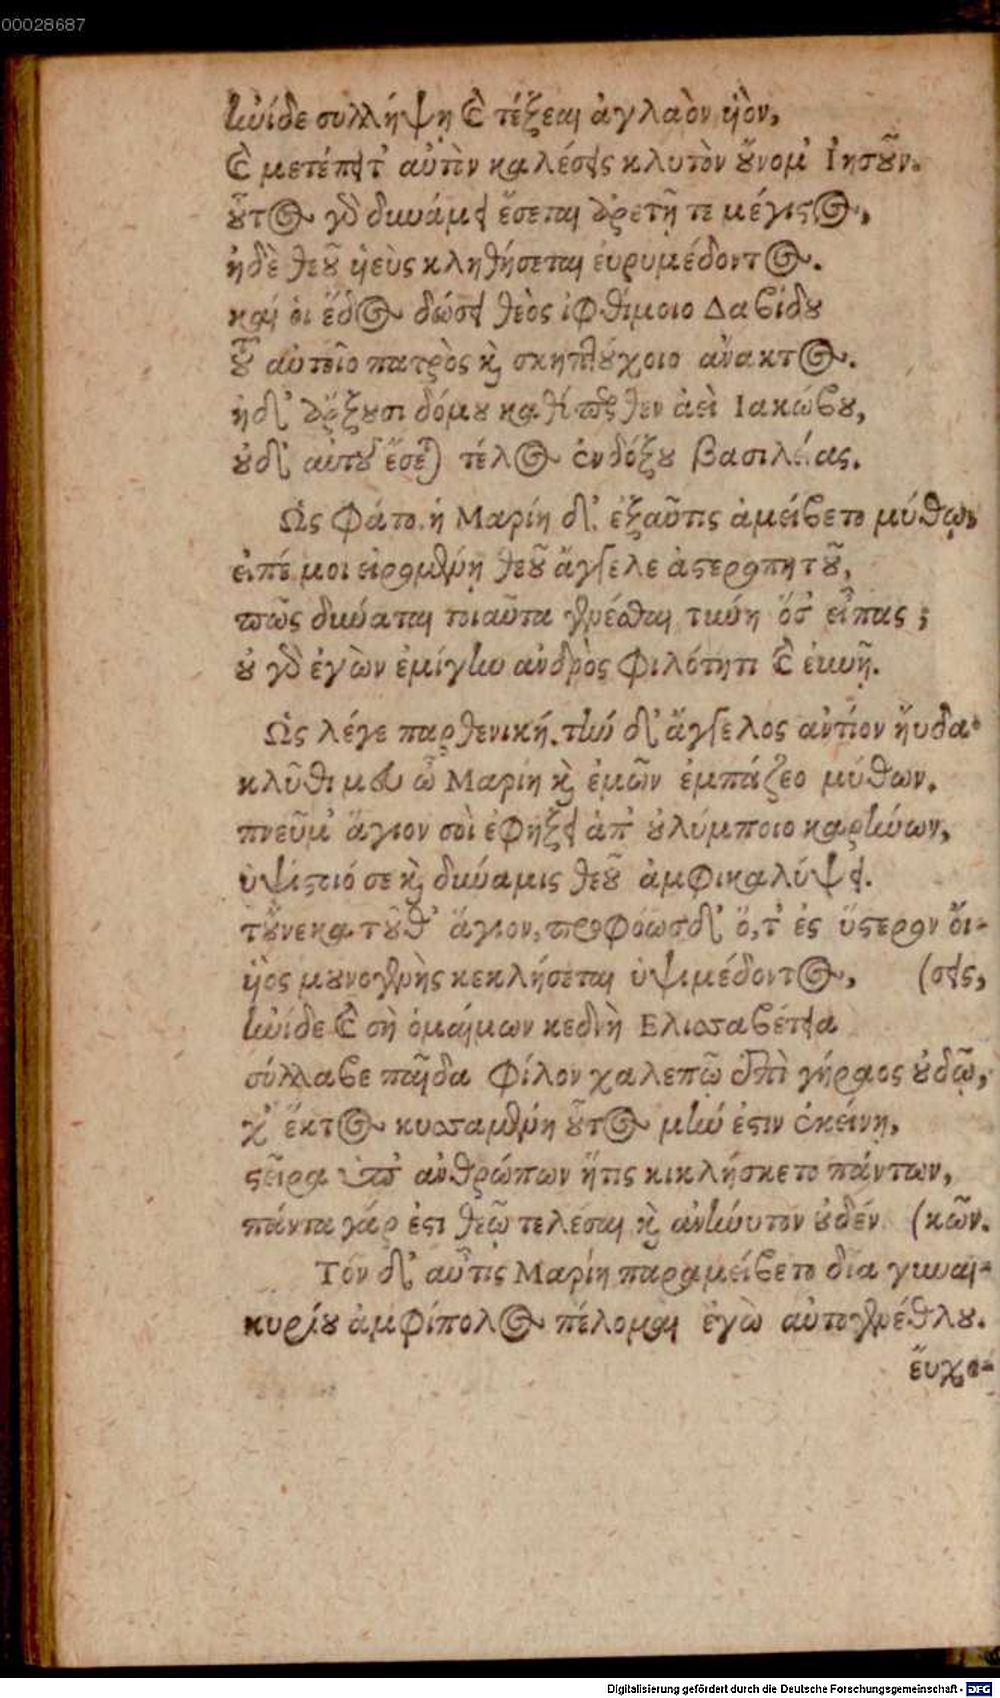 00028687
ἠνίδε συλλήψῃ καὶ τέξεαι ἀγλαὸν ᾑὸν,
καὶ μετέπειτ' αὐτὸν καλέσεις κλυτὸν οὔνομ' Ἰησοῦν.
οὗτος γὰρ δυνάμει ἔσεται ἀρετῇ τε μέγιστος,
ἠδὲ θεοῦ ᾑεὺς κληθήσεται εὐρυμέδοντος.
καί οἱ ἕδος δώσει θεὸς ἰφθίμοιο Δαβίδου
οὗ αὐτοῖο πατρὸς καὶ σκηπτούχοιο ἄνακτος.
ἠδ' ἄρξουσι δόμου ἀεὶ Ἰακώβου,
οὐδ' αὐτοῦ ἔσεται τέλος ἐνδόξου βασιλείας.
Ὣς φάτο. ἡ Μαρίη δ' ἐξαῦτις ἀμείβετο μύθῳ,
εἰπέ μοι εἰρομένῃ θεοῦ ἄγγελε ἀστεροπητοῦ,
πῶς δύναται τοιαῦτα γενέσθαι τύνη ὅσ' εἶπας ;
οὐ γὰρ ἐγὼν ἐμίγην ἀνδρὸς φιλότητι καὶ εὐνῇ.
Ὣς λέγε παρθενική. τὴν δ' ἄγγελος ἀντίον ἤυδα·
κλῦθι μευ ὦ Μαρίη καὶ ἐμῶν ἐμπάζεο μύθων.
πνεῦμ' ἅγιον σοὶ ἐφήξει ἀπ' οὐλύμποιο καρήνων,
ὑψίστιό σε καὶ δύναμις θεοῦ ἀμφικαλύψει.
τοὔνεκα τοῦθ' ἅγιον, προφόωσδ' ὅ,τ' ἐς ὕστερον οἴ-
ᾑος μουνογενὴς κεκλήσεται ὑψιμέδοντος, (σεις,
ἠνίδε καὶ σὴ ὁμαίμων κεδνὴ Ελισσαβέτεια
σύλλαβε παῖδα φίλον χαλεπῷ ἐπὶ γήραος οὐδῷ,
χ' ἕκτος κυσσαμένῃ οὗτος μὴν ἐστιν ἐκείνῃ,
στεῖρα ὑπ' ἀνθρώπων ἥτις κικλήσκετο πάντων,
πάντα γάρ ἐστι θεῷ τελέσαι καὶ ἀνήνυτον οὐδέν (κῶν.
Τὸν δ' αὖτις Μαρίη παραμείβετο δῖα γυναι-
κυρίου ἀμφίπολος πέλομαι ἐγὼ αὐτογενέθλου.
ἔυχο-
Digitalisierung gefördert durch die Deutsche Forschungsgemeinschaft - DFG